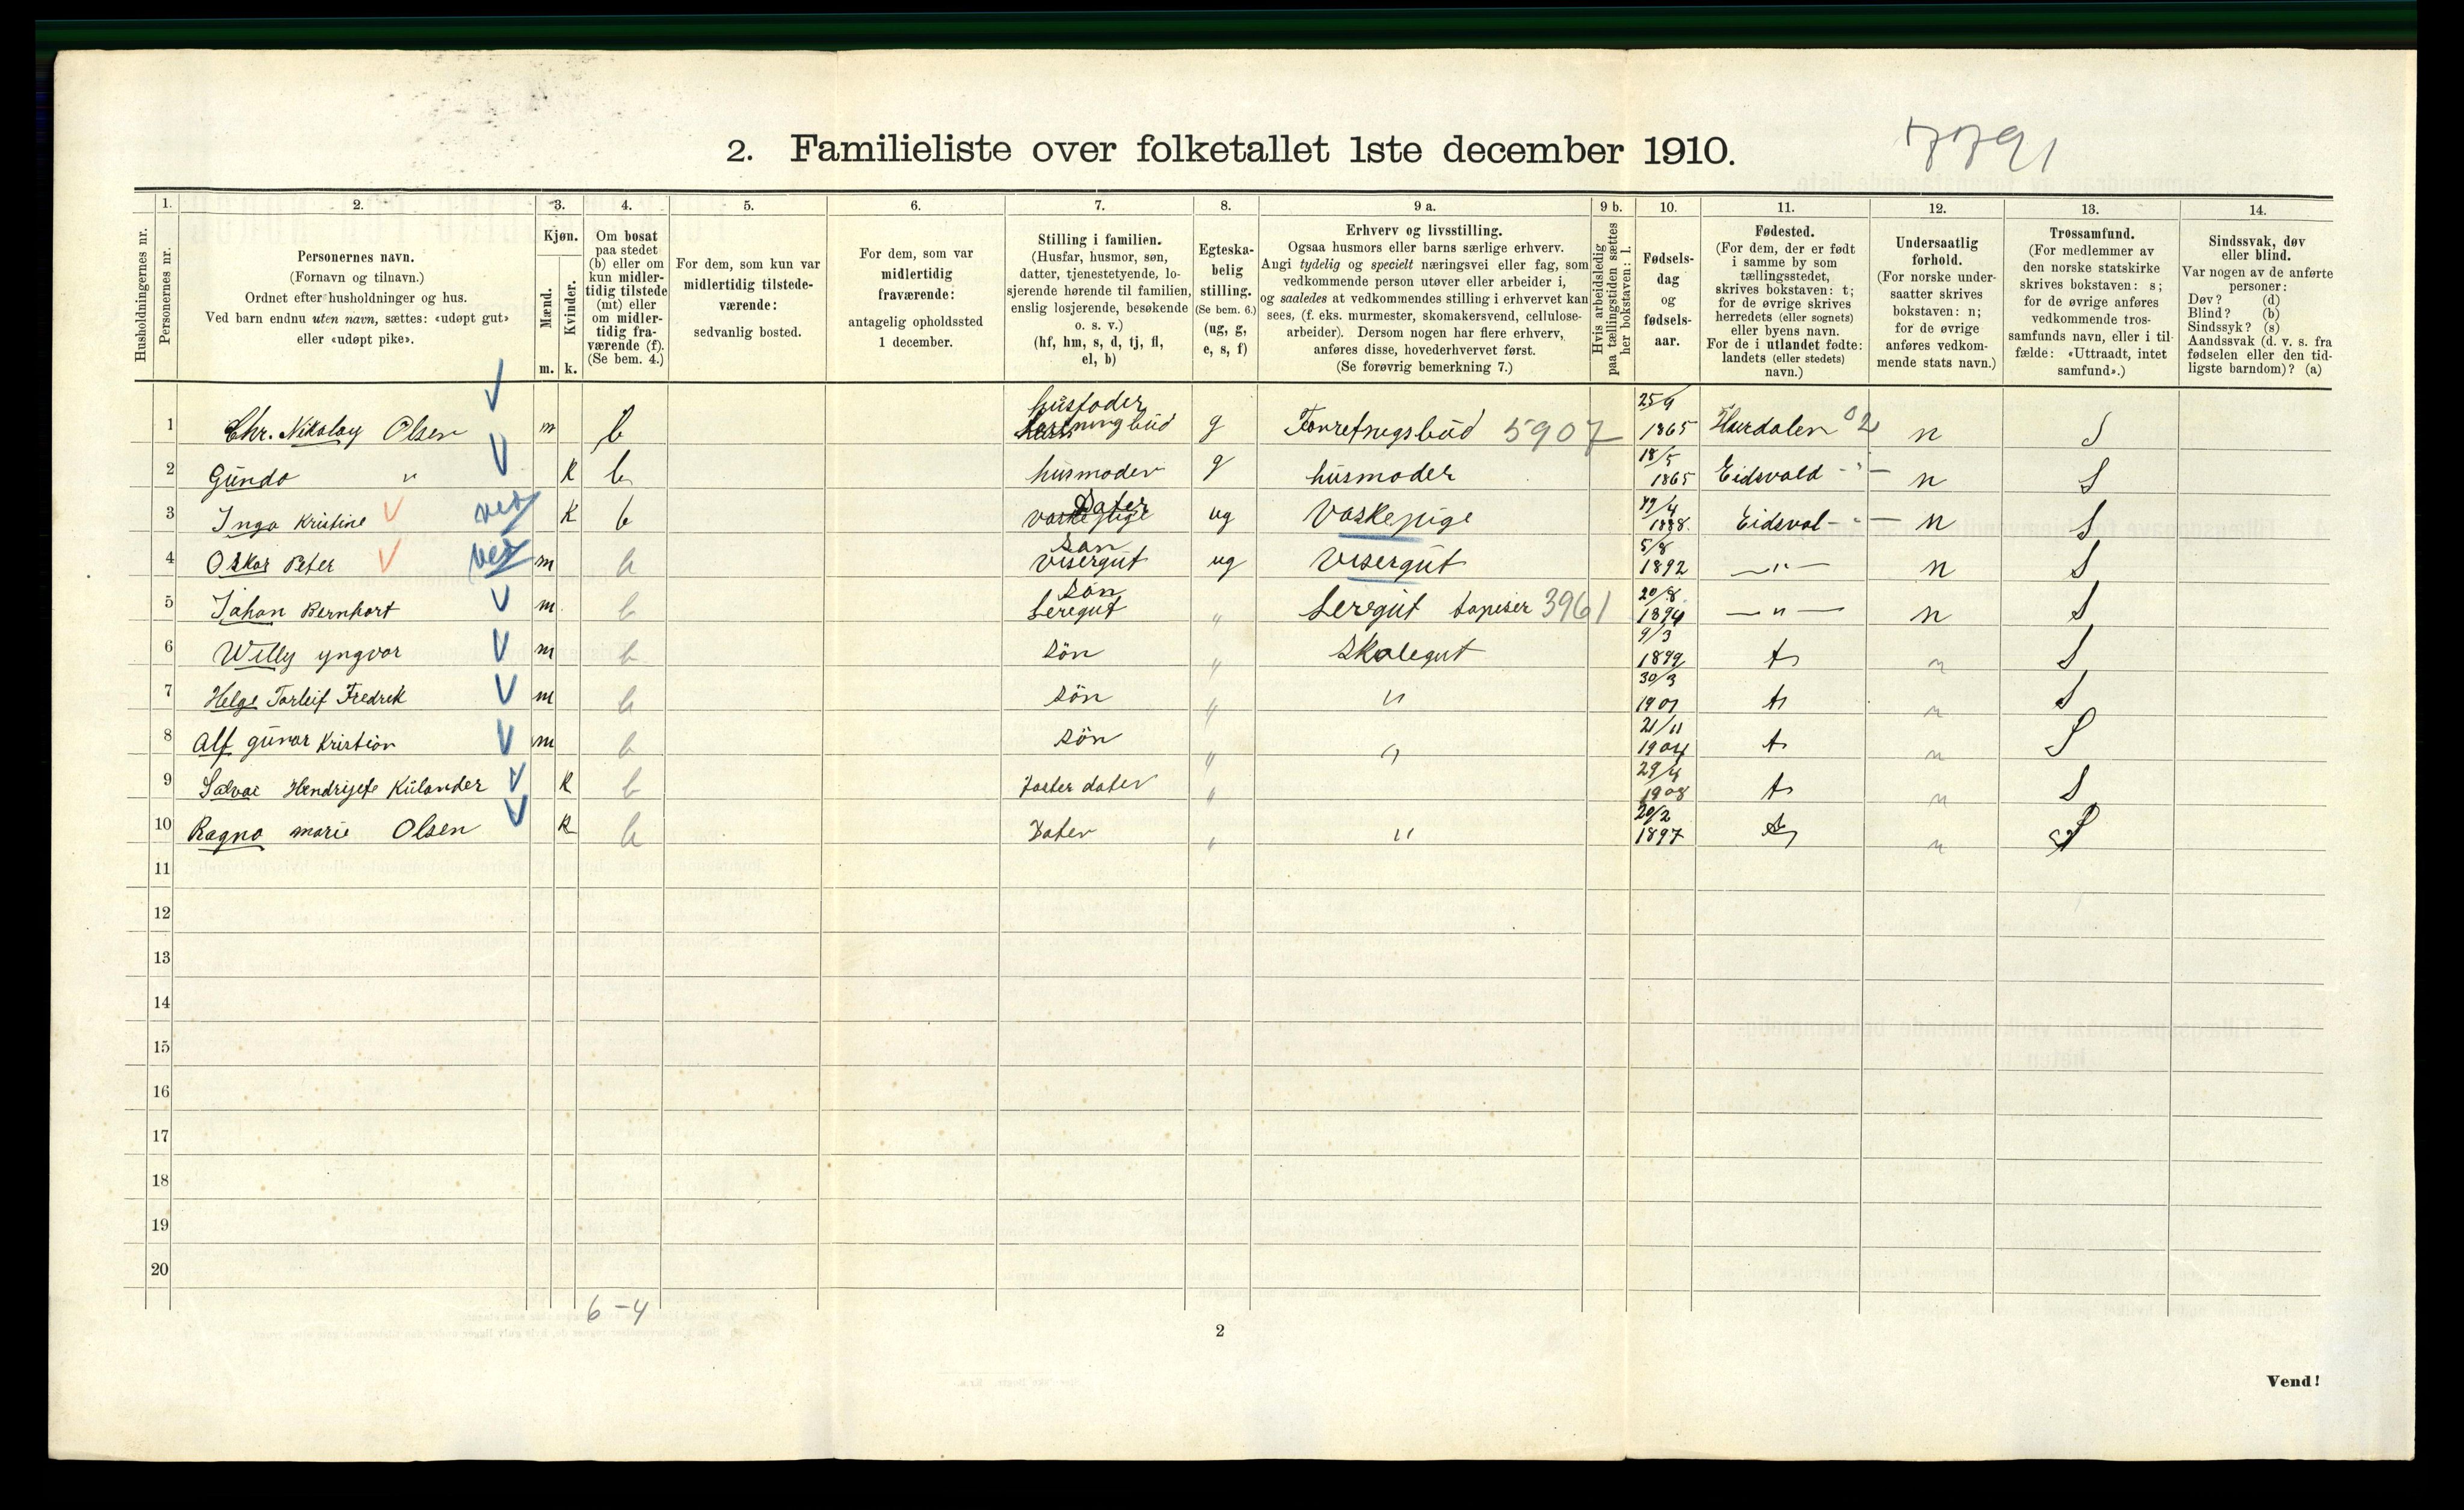 2. Familieliste over folketallet 1ste december 1910.
7791
Husholdningernes nr.
1. Personernes nr.
2. Personernes navn.
(Fornavn og tilnavn.)
Ordnet efter husholdninger og hus.
Ved barn endnu uten navn, sættes: «udøpt gut»
eller «udøpt pike».
3. Kjøn.
Mænd. m.
Kvinder. k.
4. Om bosat
paa stedet
(b) eller om
kun midler-
tidig tilstede
(mt) eller
om midler-
tidig fra-
værende (f).
(Se bem. 4.)
5. For dem, som kun var
midlertidig tilstede-
værende:
sedvanlig bosted.
6. For dem, som var
midlertidig
fraværende:
antagelig opholdssted
1 december.
7. Stilling i familien.
(Husfar, husmor, søn,
datter, tjenestetyende, lo-
sjerende hørende til familien,
enslig losjerende, besøkende
o. s. v.)
(hf, hm, s, d, tj, fl,
el, b)
8. Egteska-
belig
stilling.
(Se bem. 6.)
(ug, g,
e, s, f)
9 a. Erhverv og livsstilling.
Ogsaa husmors eller barns særlige erhverv.
Angi tydelig og specielt næringsvei eller fag, som
vedkommende person utøver eller arbeider i,
og saaledes at vedkommendes stilling i erhvervet kan
sees, (f. eks. murmester, skomakersvend, cellulose-
arbeider). Dersom nogen har flere erhverv,
anføres disse, hovederhvervet først.
(Se forøvrig bemerkning 7.)
9 b. Hvis arbeidsledig
paa tællingstiden sættes
her bokstaven: l.
10. Fødsels-
dag
og
fødsels-
aar.
11. Fødested.
(For dem, der er født
i samme by som
tællingsstedet,
skrives bokstaven: t;
for de øvrige skrives
herredets (eller sognets)
eller byens navn.
For de i utlandet fødte:
landets (eller stedets)
navn.)
12. Undersaatlig
forhold.
(For norske under-
saatter skrives
bokstaven: n;
for de øvrige
anføres vedkom-
mende stats navn.)
13. Trossamfund.
(For medlemmer av
den norske statskirke
skrives bokstaven: s;
for de øvrige anføres
vedkommende tros-
samfunds navn, eller i til-
fælde: «Uttraadt, intet
samfund».)
14. Sindssvak, døv
eller blind.
Var nogen av de anførte
personer:
Døv? (d)
Blind? (b)
Sindssyk? (s)
Aandssvak (d. v. s. fra
fødselen eller den tid-
ligste barndom)? (a)
1 Chr. Nikolay Olsen m b husfoder g Forretnigsbud 5907 25/9 1865 Hurdalen 02 n S
2 Gunda " k b husmoder g husmoder 18/5 1865 Eidsvold -"- n S
3 Inga Kristine k b vaskepige Dater ug Vaskepige /4 1888 Eidsvol -"- n S
4 Oskar Peter m b visergut søn ug Visergut 5/8 1892 —"— n S
5 Johan Bernhart m b leregut søn " Leregut tapeser 3961 20/8 1894 —"— n S
6 Willy yngvar m b søn " Skolegut 9/3 1899 t n S
7 Helge Torleif Fredrek m b søn " " 30/3 1901 t n S
8 Alf gunar Kristian m b søn " " 21/11 1904 t n S
9 Hendrijete Kulander k b foster dater " 29/4 1908 t n S
10 Ragna marie Olsen k b Dater " " 20/2 1897 t n S
11
12
13
14
15
16
17
18
19
20
6 - 4
2
Vend!